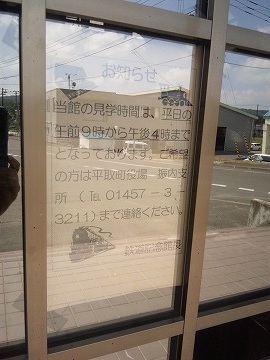 お知らせ
当館の見学時間は、平日の
午前9時から午後4時まで
となっております。ご希望
の方は平取町役場 振内支
所(℡01457-3、
3211)まで連絡ください。
鉄道記念館長